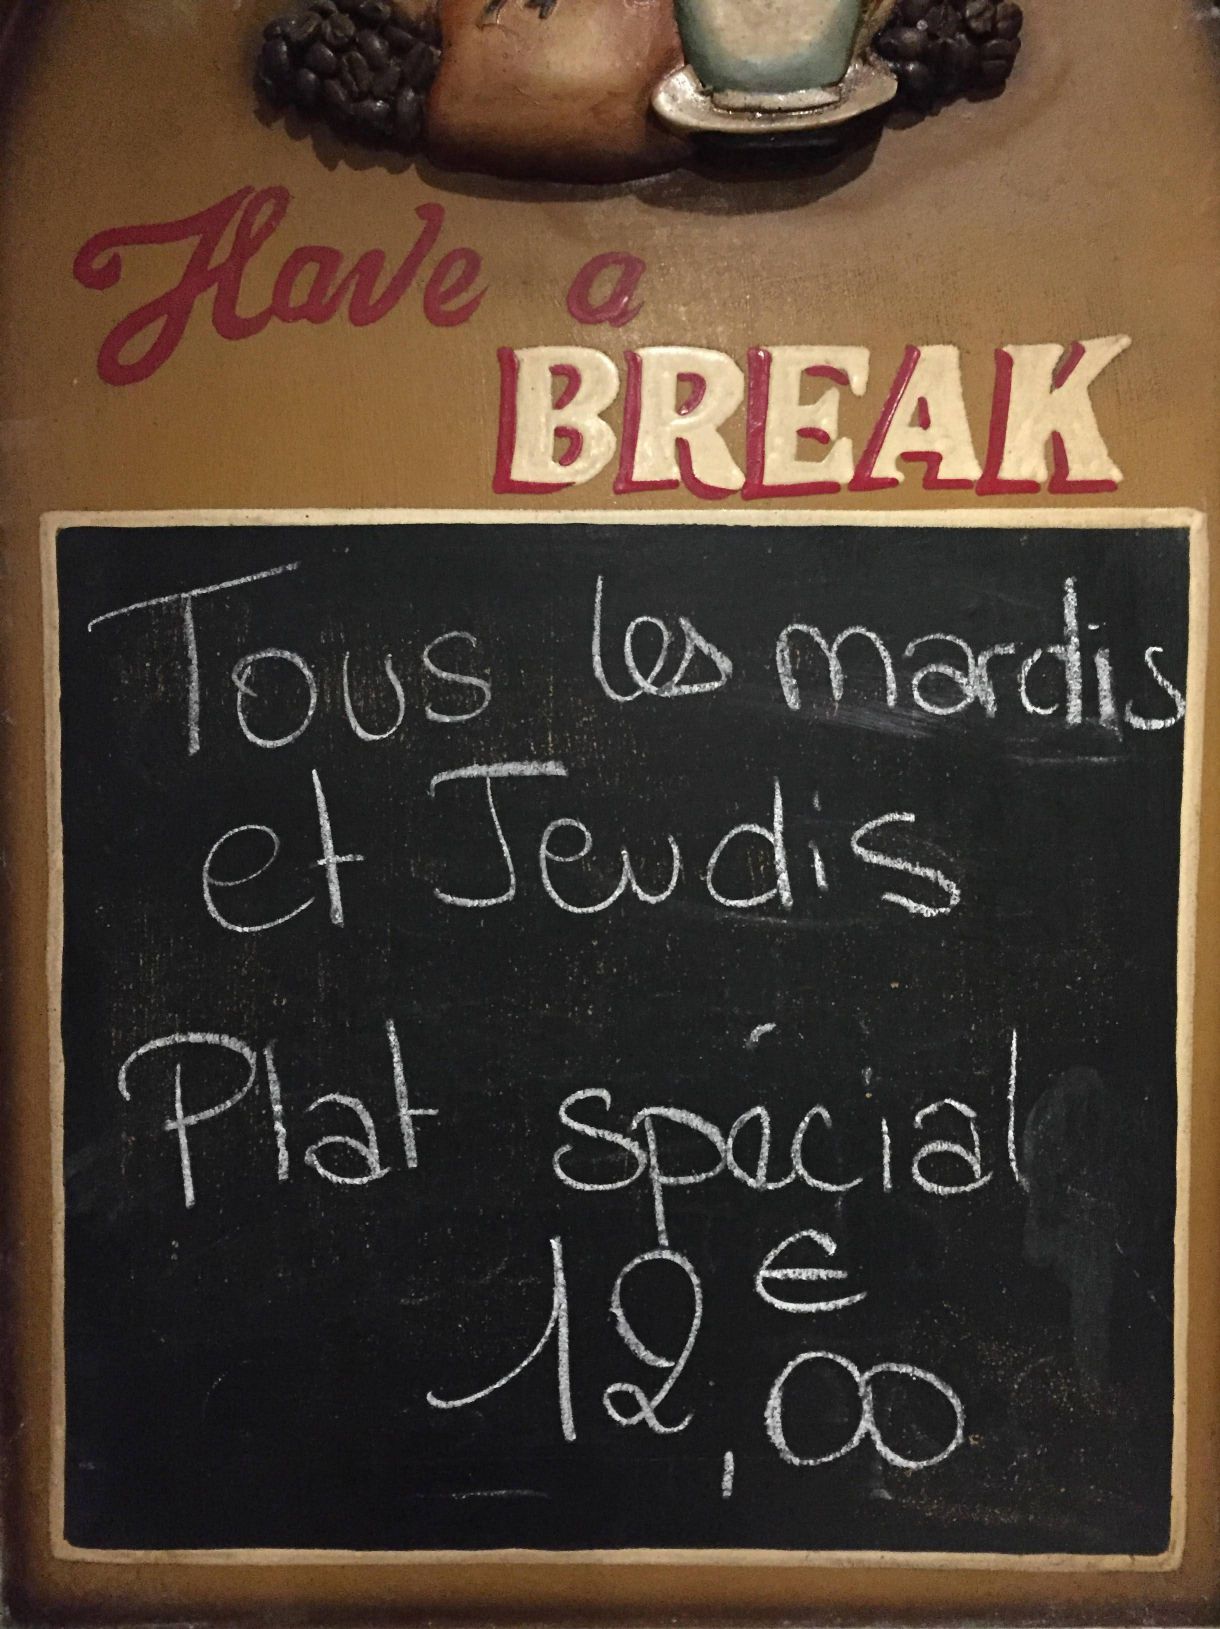 Have a
BREAK
Tous les mardis
et Jeudis
Plat spécial
12,€00